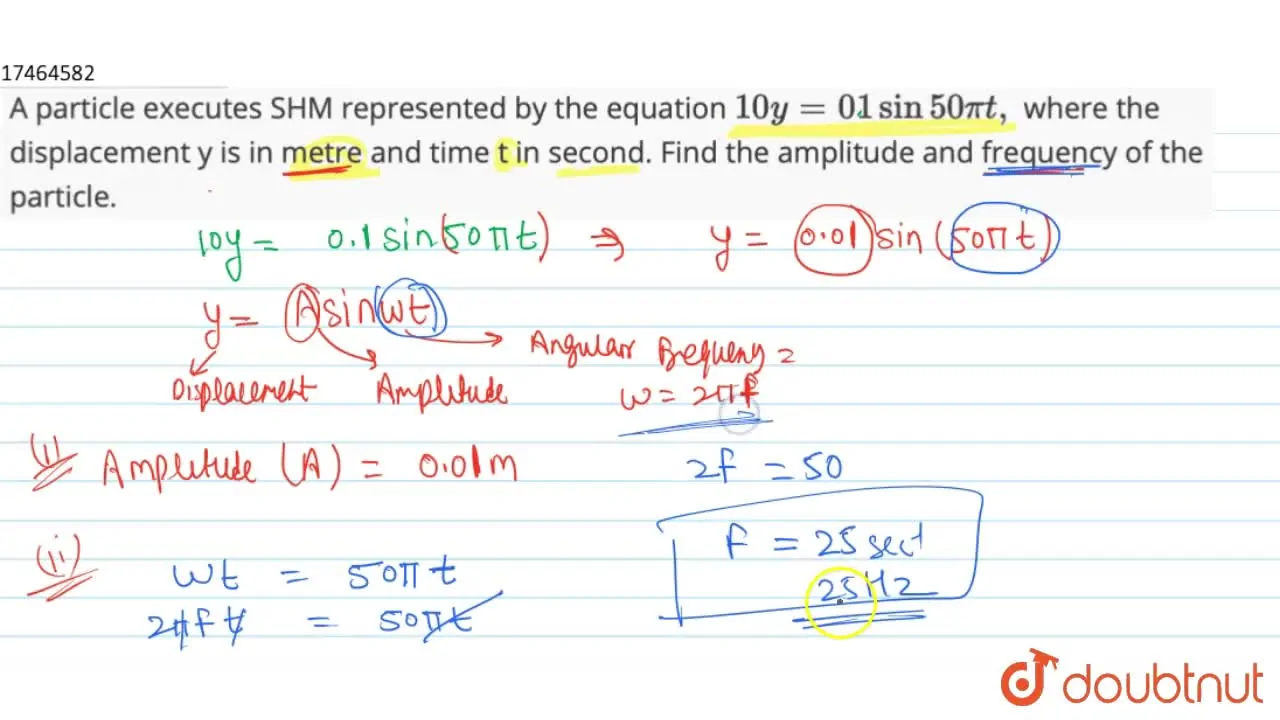 17464582
A particle executes SHM represented by the equation 10y = 01 sin 50πt, where the
displacement y is in metre and time t in second. Find the amplitude and frequency of the
particle.
10y = 0.1 sin(50πt) ⇒ y = 0.01 sin (50πt)
y = A sin(wt)
Angular frequency =
Displacement Amplitude w = 2πf
(i) Amplitude (A) = 0.01m 2f = 50
(ii) wt = 50πt f = 25 sec-1
2πft = 50πt 25Hz
doubtnut